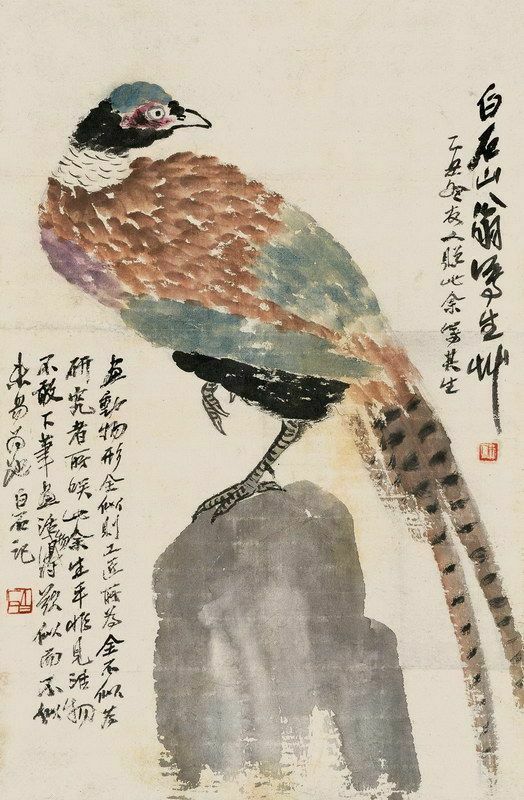 白石山翁寫生艸
乙丑冬友人贈此余寫其生
畫動物形全似則工匠所為全不似
研究者所此余生平非見活物
不敢下筆畫活物欲似而不似
未易白石記